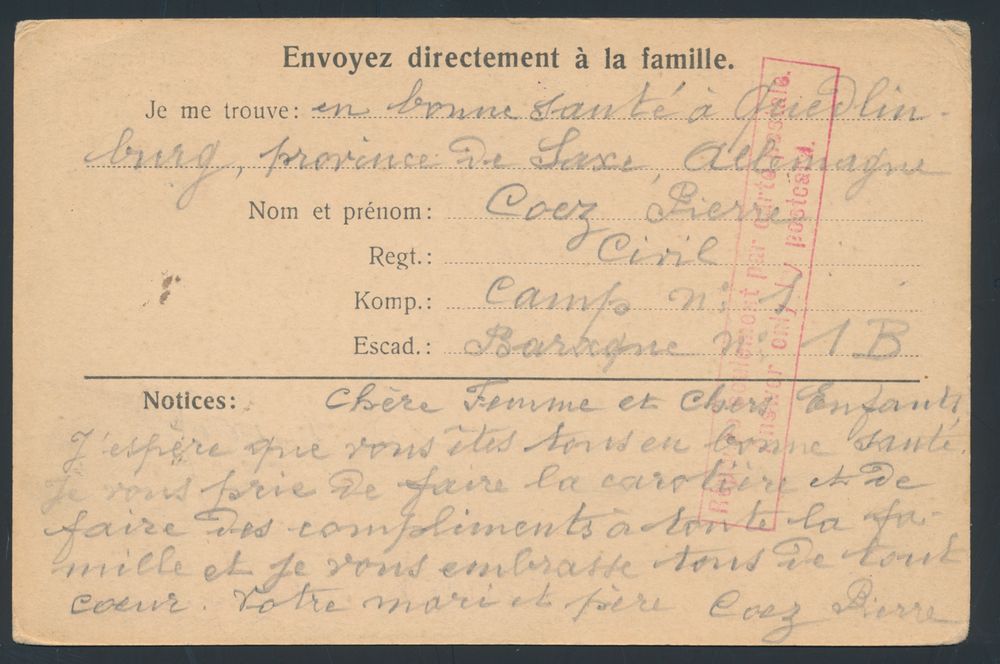 Envoyez directement à la famille.
Je me trouve: en bonne santé à Quedlin-
burg, province de Saxe, Allemagne
Nom et prénom: Coez Pierre
Regt.: Civil
Komp.: Camp n° 1
Escad.: Baraque n° 1 B
Notices: Chère Femme et chers Enfants
J'espère que vous êtes tous en bonne santé.
Je vous prie de faire la carotière et de
faire des compliments à toute la fa-
mille et je vous embrasse tous de tout
coeur. Votre mari et père Coez Pierre
Réponse seulement par carte postale.
Answer only by postcard.